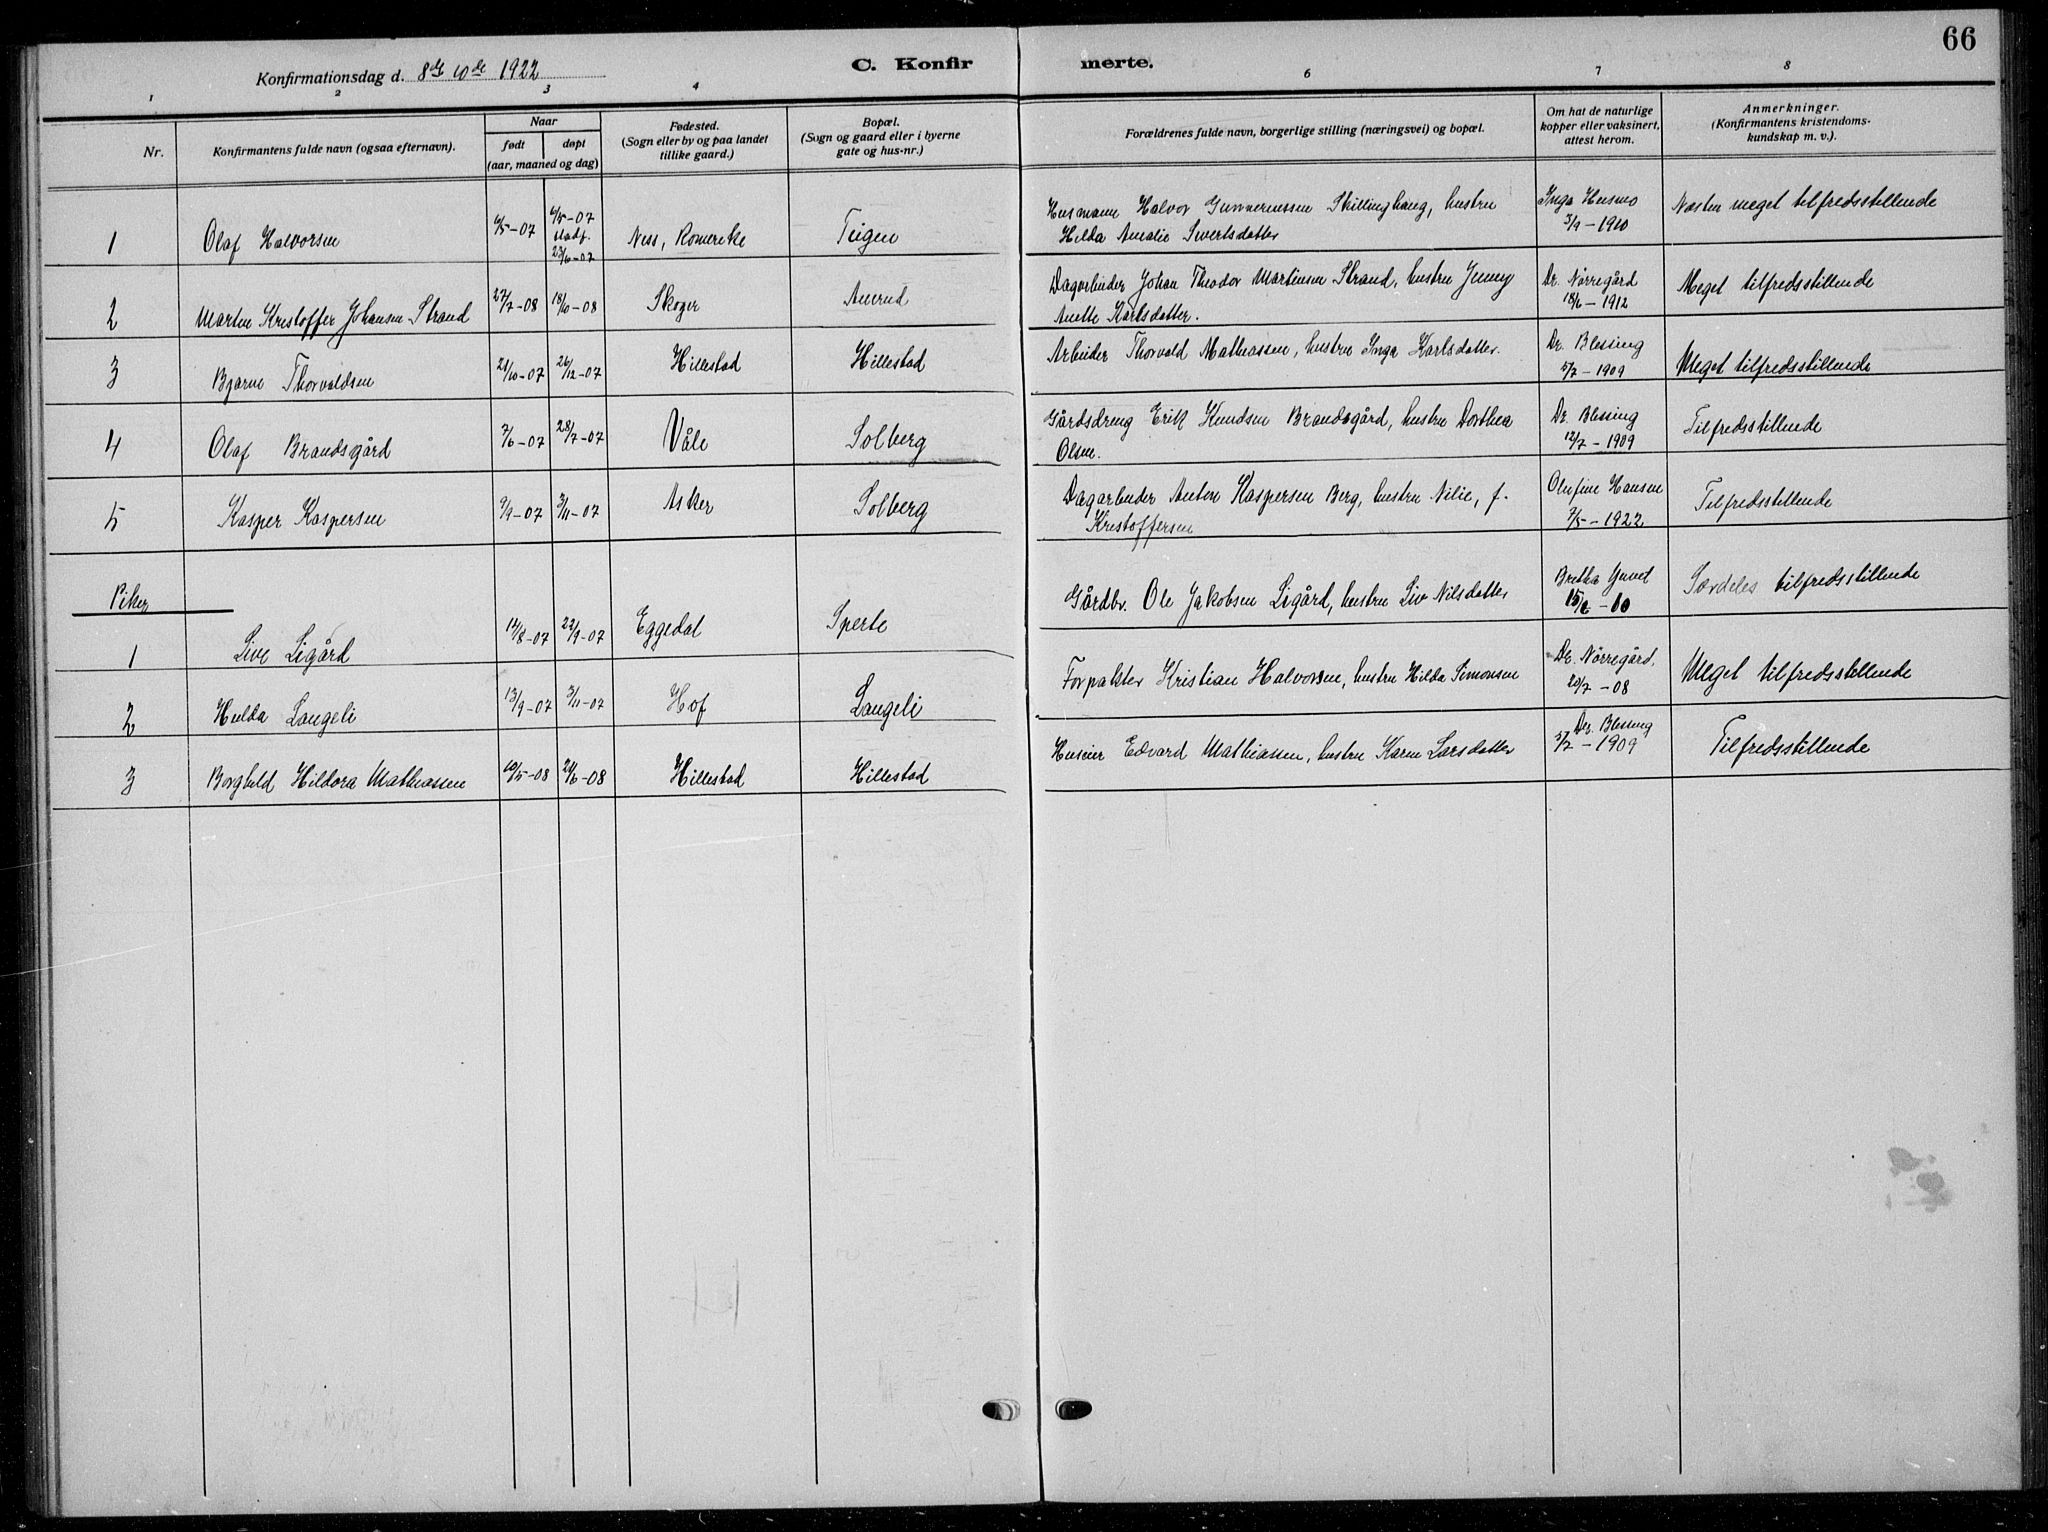 66
Konfirmationsdag d. 8de 10de 1922
C. Konfirmerte.
1 2 3 4 6 7 8
Nr.
Konfirmantens fulde navn (ogsaa efternavn).
Naar
født
døpt
(aar, maaned og dag)
Fødested.
(Sogn eller by og paa landet
tillike gaard.)
Bopæl.
(Sogn og gaard eller i byerne
gate og hus-nr.)
Forældrenes fulde navn, borgerlige stilling (næringsvei) og bopæl.
Om hat de naturlige
kopper eller vaksinert,
attest herom.
Anmerkninger.
(Konfirmantens kristendoms-
kundskap m. v.).
1 Olaf Halvorsen 6/5-07 6/5-07 stadf. 23/6-07 Ness, Romerike Teigen
Husmann Halvor Gunnerussen Skillinghaug, hustru
Hilda Amalie Sivertsdatter
Inga Husmo
3/9-1910
Næsten meget tilfredsstillende
2 Marten Kristoffer Johansen Strand 27/7-08 18/10-08 Skoger Amrud
Dagarbeider Johan Theodor Martinsen Strand, hustru Jenny
Anette Karlsdatter.
Dr. Nørregård
18/6-1912
Meget tilfredsstillende
3 Bjarne Thorvaldsen 21/10-07 26/12-07 Hillestad Hillestad
Arbeider Thorvald Mathiassen, hustru Inga Karlsdatter.
Dr. Blessing
5/7-1909
Meget tilfredsstillende
4 Olaf Brandsgård 7/6-07 28/7-07 Våle Solberg
Gårdsdreng Erik Knudsen Brandsgård, hustru Dorthea
Olsen.
Dr. Blessing
12/7-1909
Tilfredsstillende
5 Kasper Kaspersen 9/9-07 3/11-07 Asker Solberg
Dagarbeider Anton Kaspersen Berg, hustru Nilie, f.
Kristoffersen
Olufine Hansen
7/5-1922
Tilfredsstillende
Piker
1 Live Ligård 14/8-07 22/9-07 Eggedal Sperle
Gårdbr. Ole Jakobsen Ligård, hustru Liv Nilsdatter
Bretha
15/6-10
Særdeles tilfredsstillende
2 Hulda Langeli 13/9-07 3/11-07 Hof Langeli
Forpakter Kristian Halvorsen, hustru Hilda Simonsen
Dr. Nørregård,
20/7-08
Meget tilfredsstillende
3 Borghild Hildora Mathiassen 10/5-08 21/6-08 Hillestad Hillestad
Huseier Edvard Mathiassen, hustru Karen Larsdatter
Dr. Blessing
5/7-1909
Tilfredsstillende